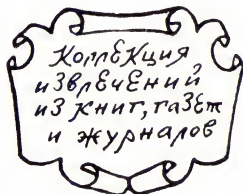 Коллекция
извлечений
из книг, газет
и журналов